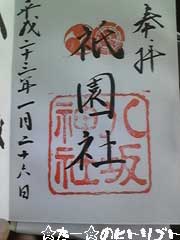 奉拝
祇園社
八坂神社
平成二十三年一月二十六日
☆たー☆のヒトリゴト